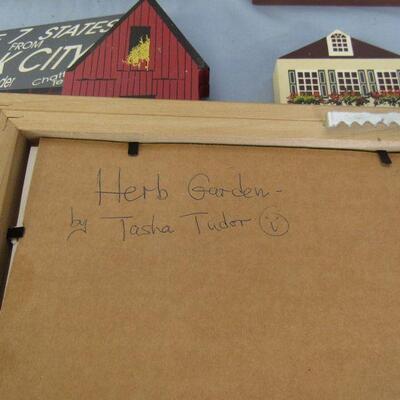 7 STATES
FROM
CITY
Herb Garden -
by Tasha Tudor